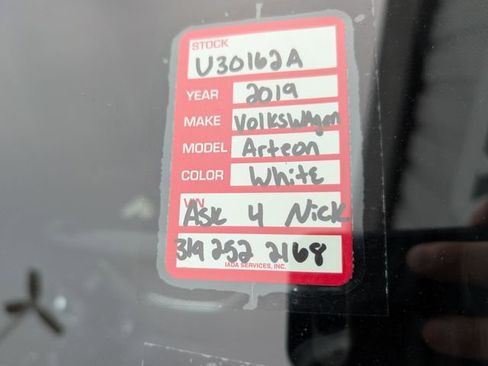 STOCK
U30162A
YEAR 2019
MAKE VolksWAgen
MODEL Arteon
COLOR White
VIN
Ask 4 Nick
319 252 2168
IADA SERVICES, INC.